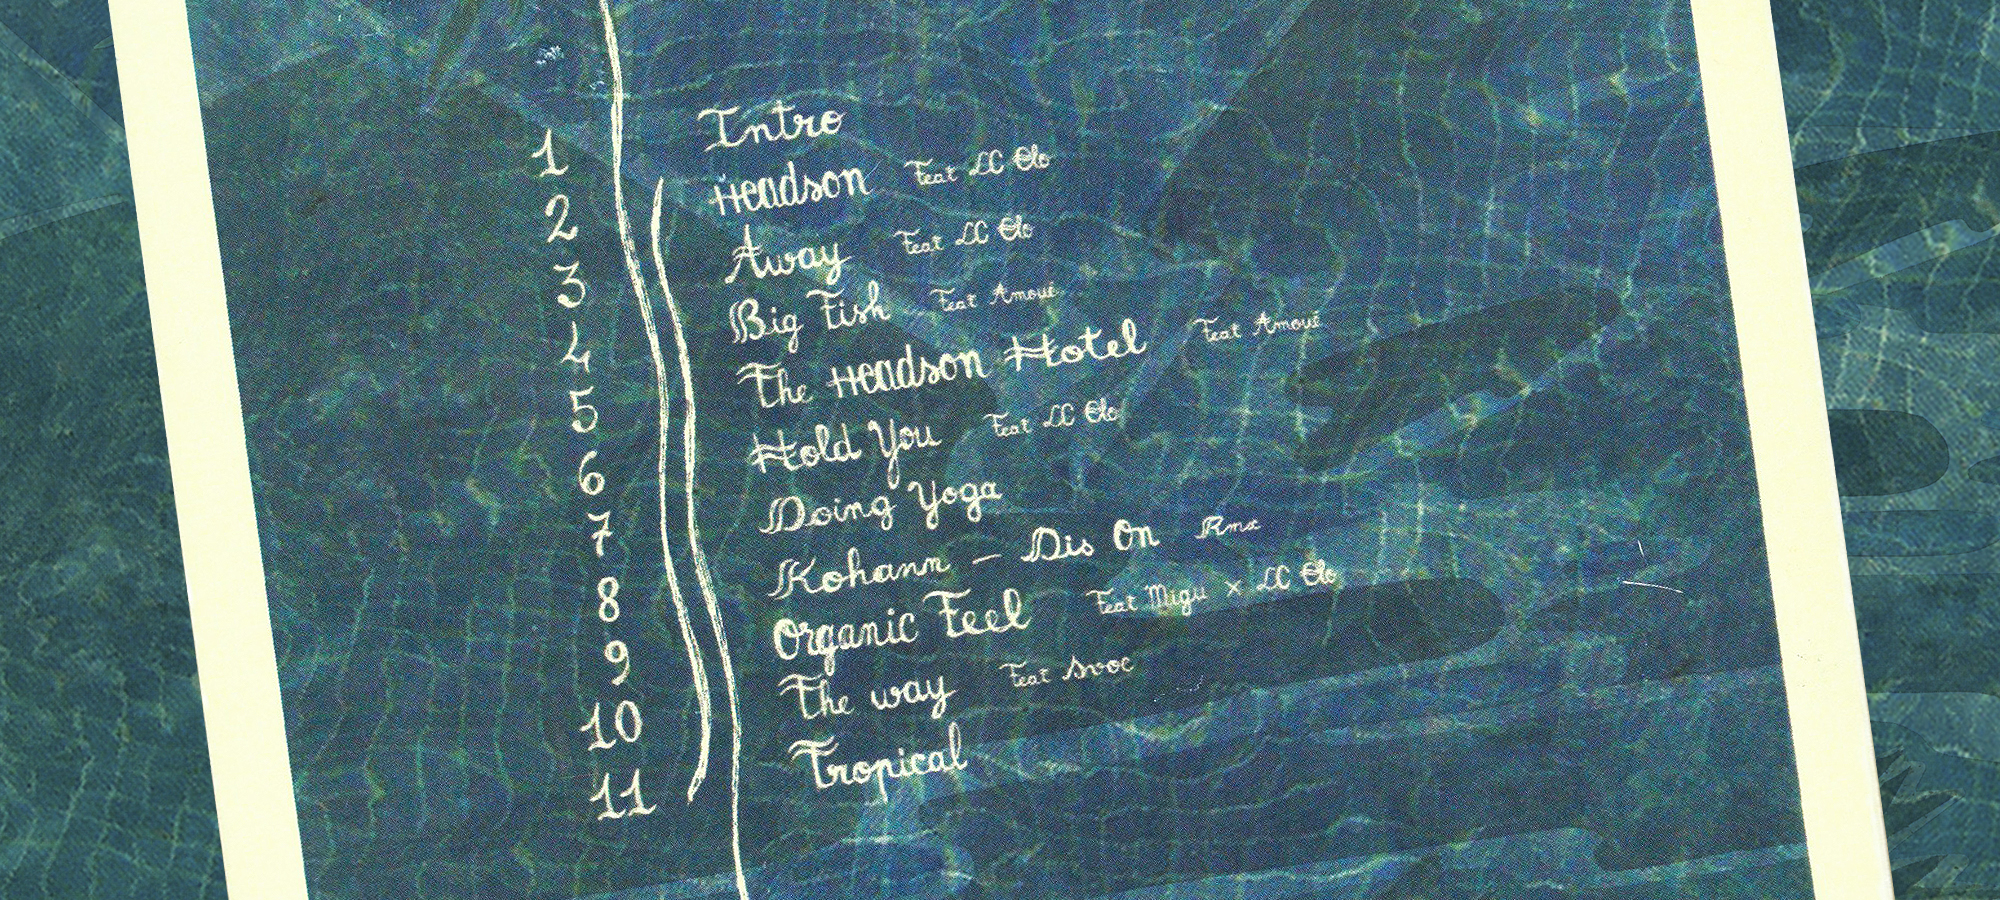 1 Intro
2 Headson Feat LC Elo
3 Away Feat LC Elo
4 Big Fish Feat Amoué
5 The Headson Hotel Feat Amoué
6 Hold You Feat LC Elo
7 Doing Yoga
8 Kohann – Dis On Rmx
9 Organic Feel Feat Migu x LC Elo
10 The way Feat Svoc
11 Tropical